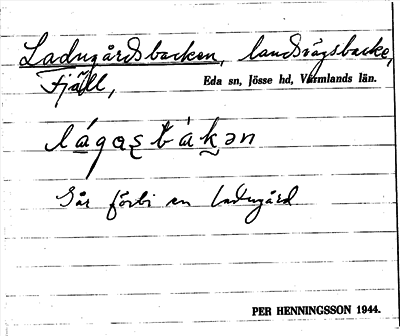 Ladugårdsbacken, landsvägsbacke,
Fjäll, Eda sn, Jösse hd, Värmlands län.
lágasbákən
Går förbi en ladugård
PER HENNINGSSON 1944.